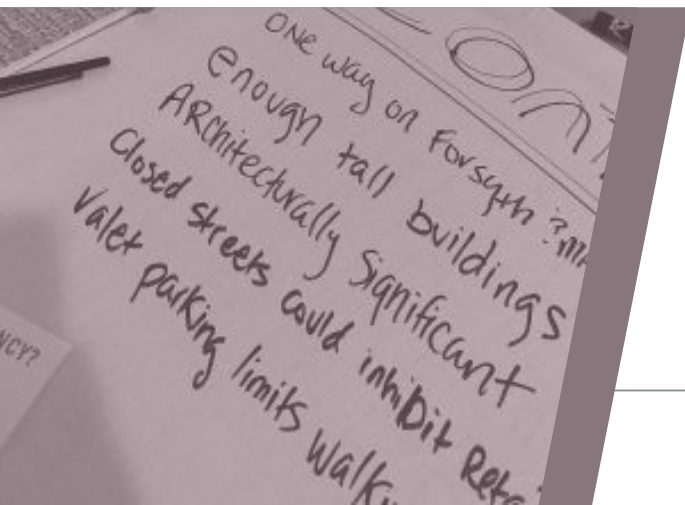 CONT
ONE way on Forsyth ?
enough tall buildings
ARchitecturally Significant
Closed streets could inhibit
Valet parking limits
NCY?